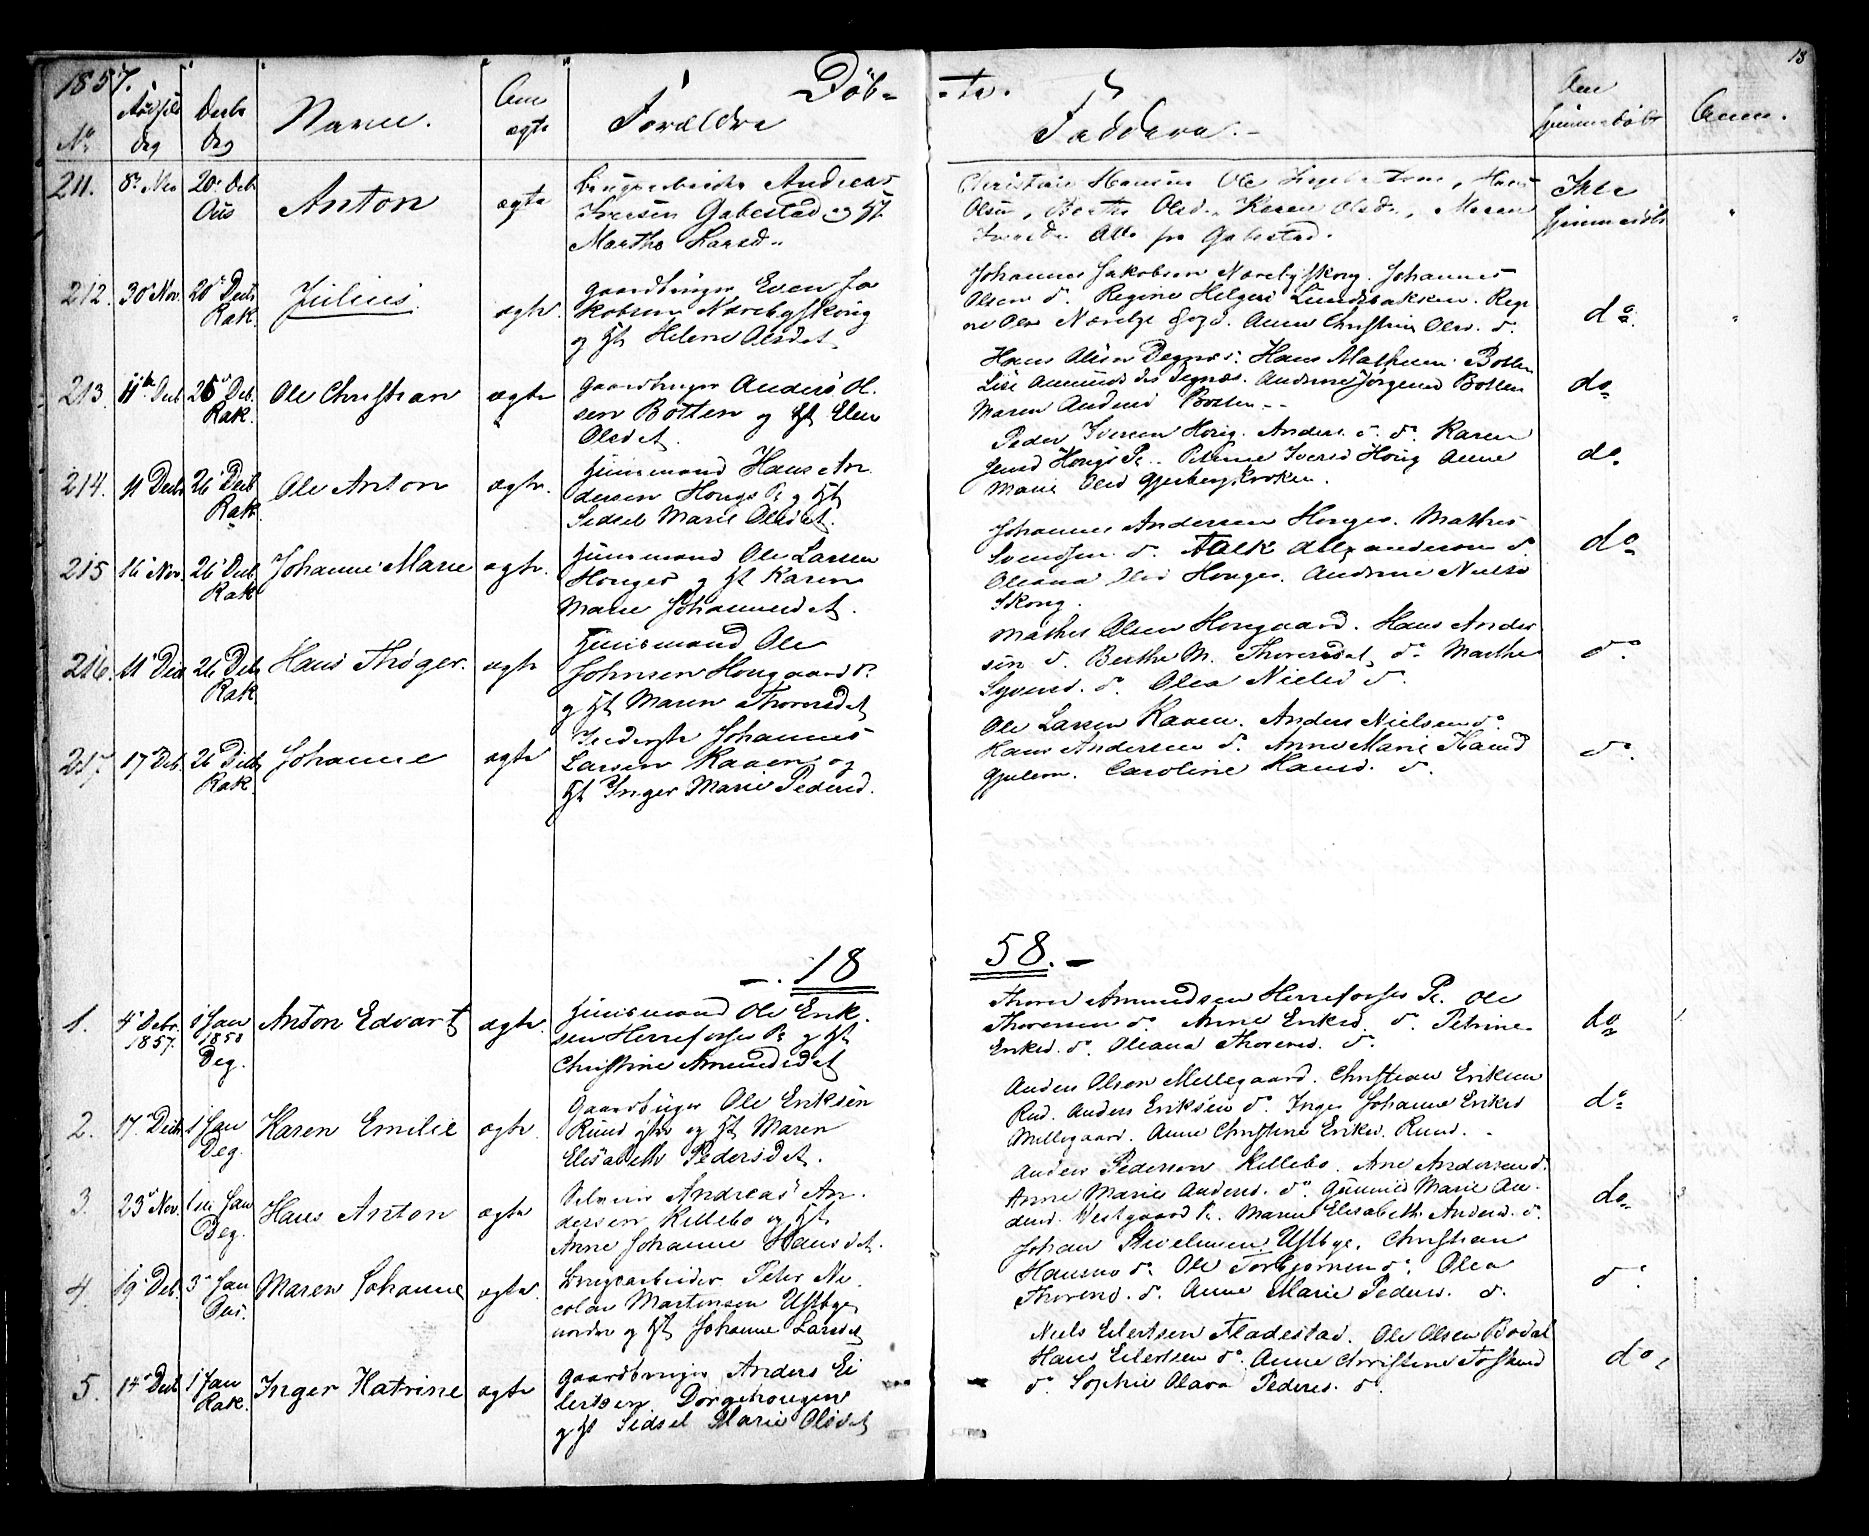 1857. Døb- -te. 18
No Fødsels dag Daabs dag Navn. Om ægte Forældre Faddere. Om hjemmedøbt Anm.
211. 8de Nov 20de Decb Aas Anton ægte Brugsarbeider Andreas
Iversen Gabestad og H.
Marthe Larsd.
Christian Hansen Ole Hans
Olsen, Berthe Olsd., Karen Olsd., Maren
Iversd. Alle fra Gabestad.
Ikke hjemmedøbt
212. 30 Nov. 20 Decb Rak. Julius. ægte. Gaardbruger Even Ja
kobsen Nærebyskoug
og Ht Helene Olsdat.
Johannes Jakobsen Nærebyskoug. Johannes
Olsen do. Regine Helgesd Lundsbakken. Regi
ne Olsd Nærebye Anne Christine Olsd. do.
do.
213. 11te Decb 26 Deb. Rak. Ole Christian ægte Gaardbruger Anders H.
sen Botten og Ht Elen
Olsdat.
Hans Olsen Degnes. Hans Mathisen Botten
Lise Amundsdat Degnæs. Andrine Jørgensd Botten
Maren Andersd Botten.
do
214. 11 Decb 26 Decb Rak. Ole Anton ægte. Huusmand Hans An
dersen Hougs Pl og Ht
Sidsel Marie Olsdat.
Peder Iversen Houg. Anders do. do. Karen
Jensd Hougs Pl. Petrine Iversd Houg Anne
Marie Olsd Gjerbergkroken.
do.
215 16 Nov. 26 Decb Rak Johanne Marie ægte. Huusmand Ole Larsen
Honger og Ht Karen
Marie Johannesdat.
Johannes Andersen Honger. Mathis
Svendsen do. Falk Alexandersen do.
Oleana Olsd Honger. Andrine Nielsd
Skoug.
do
216. 11 Dec 26 Deb Rak Hans Thøger. ægte Huusmand Ole
Johnsen Hougaard Pl.
og Ht Maren Thoresdat
Mathis Olsen Hougaard. Hans Ander
sen do. Berthe M. Thoresdat, do. Marthe
Syversd. do. Olea Nielsd do.
do.
217. 17 Deb. 26 Decb Rak. Johanne ægte Inderste Johannes
Larsen Kaaen og
Ht Inger Marie Pedersd.
Ole Larsen Kaaen. Anders Nielsen do.
Hans Andersen do. Anne Marie Hansd
Gjulem. Caroline Hansd. do.
do.
-. 18 58. -
1. 4de Debr. 1857. 1 Jan 1858 Deg. Anton Edvart ægte. Huusmand Ole Erik.
sen Herrefosses Pl og Ht
Christine Amundsdat
Thore Amundsen Herrefosses Pl. Ole
Thoresen do. Anne Eriksd. do. Petrine
Eriksd. do. Oleana Thoresd. do.
do
2. 17. Decb 1 Jan Deg. Karen Emilie ægte. Gaardbruger Ole Eriksen
Ruud og Ht Maren
Elisabeth Pedersdat.
Anders Olsen Mellegaard. Christian Eriksen
Rud. Anders Eriksen do. Inger Johanne Eriksd
Mellegaard. Anne Christine Eriksd. Ruud.
do.
3. 23 Nov. 1ste Jan Deg. Hans Anton ægte Selveier Andreas An.
dersen Killebo og Ht
Anne Johanne Hansdat.
Anders Pedersen Killebo. Ane Andersen do.
Anne Marie Andersd. do. Gunnild Marie An.
dersd. Vestgaard Pl. Maren Elisabeth Andersd. do.
do.
4. 19. Deb. 3 Jan Aas. Maren Johanne ægte. Brugsarbeider Peter Ni
colai Martinsen Ustbye
nordre og Ht Johanne Larsdat
Johan Ustbye. Christian
Hansen do. Ole Torbjørnsen do. Olea
Thoresd. do. Anne Marie Pedersd. do.
do.
5. 14 Decb 1 Jan Rak. Inger Katrine ægte Gaardbruger Anders Ei
lertsen Dørgehougen
og Ht Sidsel Marie Olsdat
Niels Eilertsen Fladestad. Ole Olsen Bodal
Hans Eilertsen do. Anne Christine
do. Sophie Olava Pedersd. do.
do.